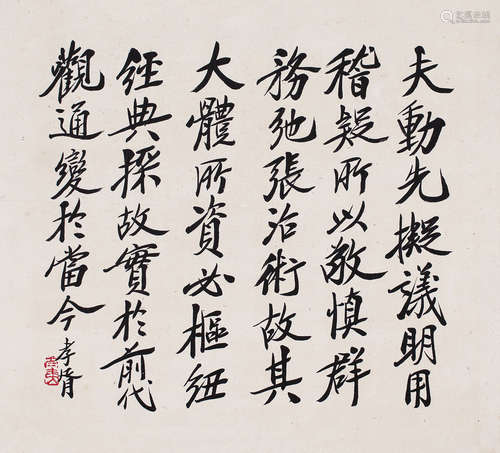 夫動先擬議明用
稽疑所以敬慎群
務弛張治術故其
大體所資必樞紐
經典採故實於前代
觀通變於當今孝胥